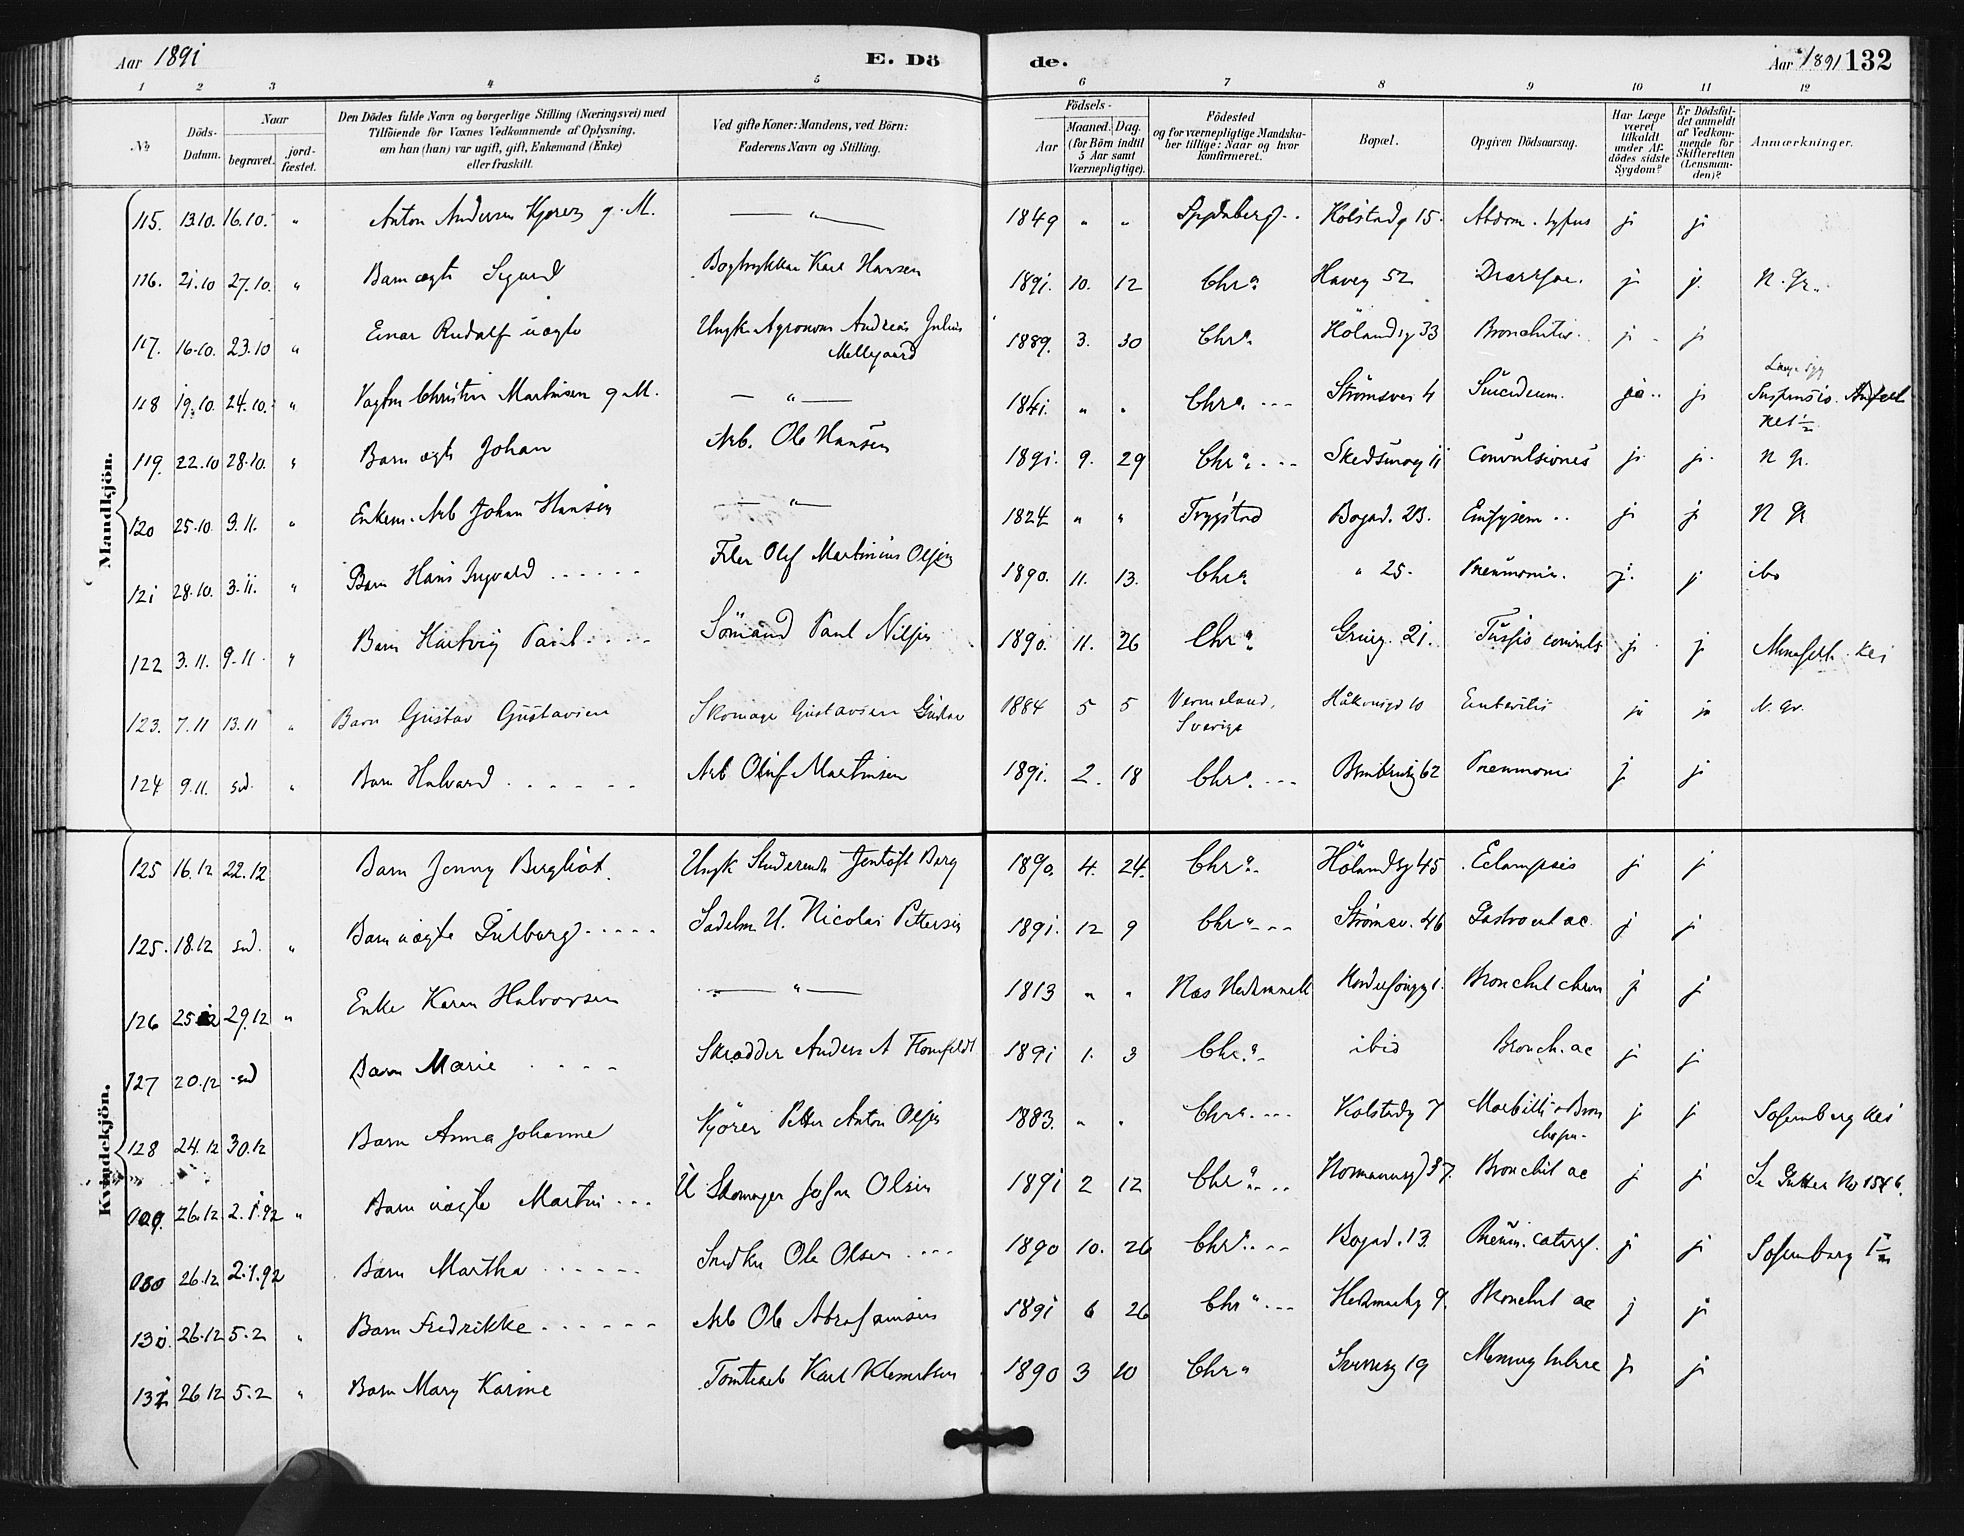 Aar 1891
E. Dö
de.
Aar 1891 132
1 2 3 4 5 6 7 8 9 10 11 12
No
Döds-Datum.
Naar
begravet.
jord-fæstet.
Den Dödes fulde Navn og borgerlige Stilling (Næringsvei) med
Tilföiende for Voxnes Vedkommende af Oplysning,
om han (hun) var ugift, gift, Enkemand (Enke)
eller fraskilt.
Ved gifte Koner: Mandens, ved Börn:
Faderens Navn og Stilling.
Födsels-
Aar
Maaned. Dag.
(for Börn indtil
5 Aar samt
Værnepligtige).
Födested
og for værnepligtige Mandska-
ber tillige: Naar og hvor
konfirmeret.
Bopæl.
Opgiven Dödsaarsag.
Har Læge
været
tilkaldt
under Af-
dödes sidste
Sygdom?
Er Dödsfal-
det anmeldt
af Vedkom-
mende for
Skifteretten
(Lensman-
den)?
Anmærkninger.
Mandkjön.
115. 13.10. 16.10. " Anton Andersen g. M. — " — 1849 " " Kolstadg 15. Abdom. tyfus j j
116. 21.10 27.10. " Barn ægte Sigurd Bogtrykker Karl Hansen 1891. 10. 12 Chra. Haveg 52 j j. N. Gr.
117. 16.10. 23.10 " Einar Rudolf uægte Ungk. Agronom Andreas Julius
Mellgaard 1889. 3. 30 Chra. Hölandsg 33 Bronchitis. j j
118 19.10. 24.10. " Christin Martinsen g M. — " — 1841. " " Chra. Strømsvei 4 Suicidium. ja j
119. 22.10 28.10. " Barn ægte Johan Arb. Ole Hansen 1891. 9. 29 Chra. Skedsmog 11 Convulsiones j j N Gr.
120 25.10 3.11. " Enkem. Arb Johan Hansen — " — 1824 " " Trygstad Bogad. 23. Emfysem j j N Gr
121 28.10. 3.11. " Barn Hans Ingvald Filer Olof Martinius Olsen 1890. 11. 13. Chra. " 25. Pneumonia. j. j ibo
122 3.11. 9.11. " Barn Hartvig Paul Sömand Paul Nilsen 1890. 11. 26 Chra. 21. Tussis convuls j j
123. 7.11 13.11 " Barn Gustav Gustavsen Skomager Gustavsen Gustav 1884 5 5 Vermeland,
Sverige Håkonsgd 10 Enteritis ja ja N. Gr.
124 9.11. sd. " Barn Halvard Arb Oluf Martinsen 1891. 2. 18 Chra. 62 Pneumoni j j
Kvindekjön.
125 16.12 22.12 Barn Jenny Bergliot Ungk Studerende Jentoft Berg 1890. 4. 24. Chra. Hölandsg 45 Eclampsis j j
125. 18.12 sd. " Barn uægte Sadelm. U. Nicolai Pettersen 1891. 12 9 Chra. Strømsv. 46 Gastroent ac. j j
126 25.12 29.12 " Enke Karen Halvorsen — " — 1813 " " Næs Hedemark Bronchit chron j j
127 20.12 sd Barn Marie Skrædder Anders A 1891 1. 3 Chra. ibid Bronch. ac j j
128 24.12 30.12 Barn Anna Johanne Kjörer Petter Anton Olsen 1883. " " Chra. Kolstadg 7 Morbilli Bron
chopn. j j Sofienberg
26.12. 2.1.92 " Barn uægte Martin U Skomager Johan Olsen 1891 2 12 Chra. 37. Bronchit ac j j
26.12 2.1.92 Barn Martha Snedker Ole Olsen 1890 10. 26 Chra. Bogad. 13. Pneum. catarrh. j j Sofienberg
26.12 5.2 " Barn Fredrikke Arb Ole Abrahamsen 1891 6 26 Chra. Hedmarkg 9. Bronchit ac j j
26.12 5.2 " Barn Mary Karine Karl Klemetsen 1890 3 10 Chra 19 j j